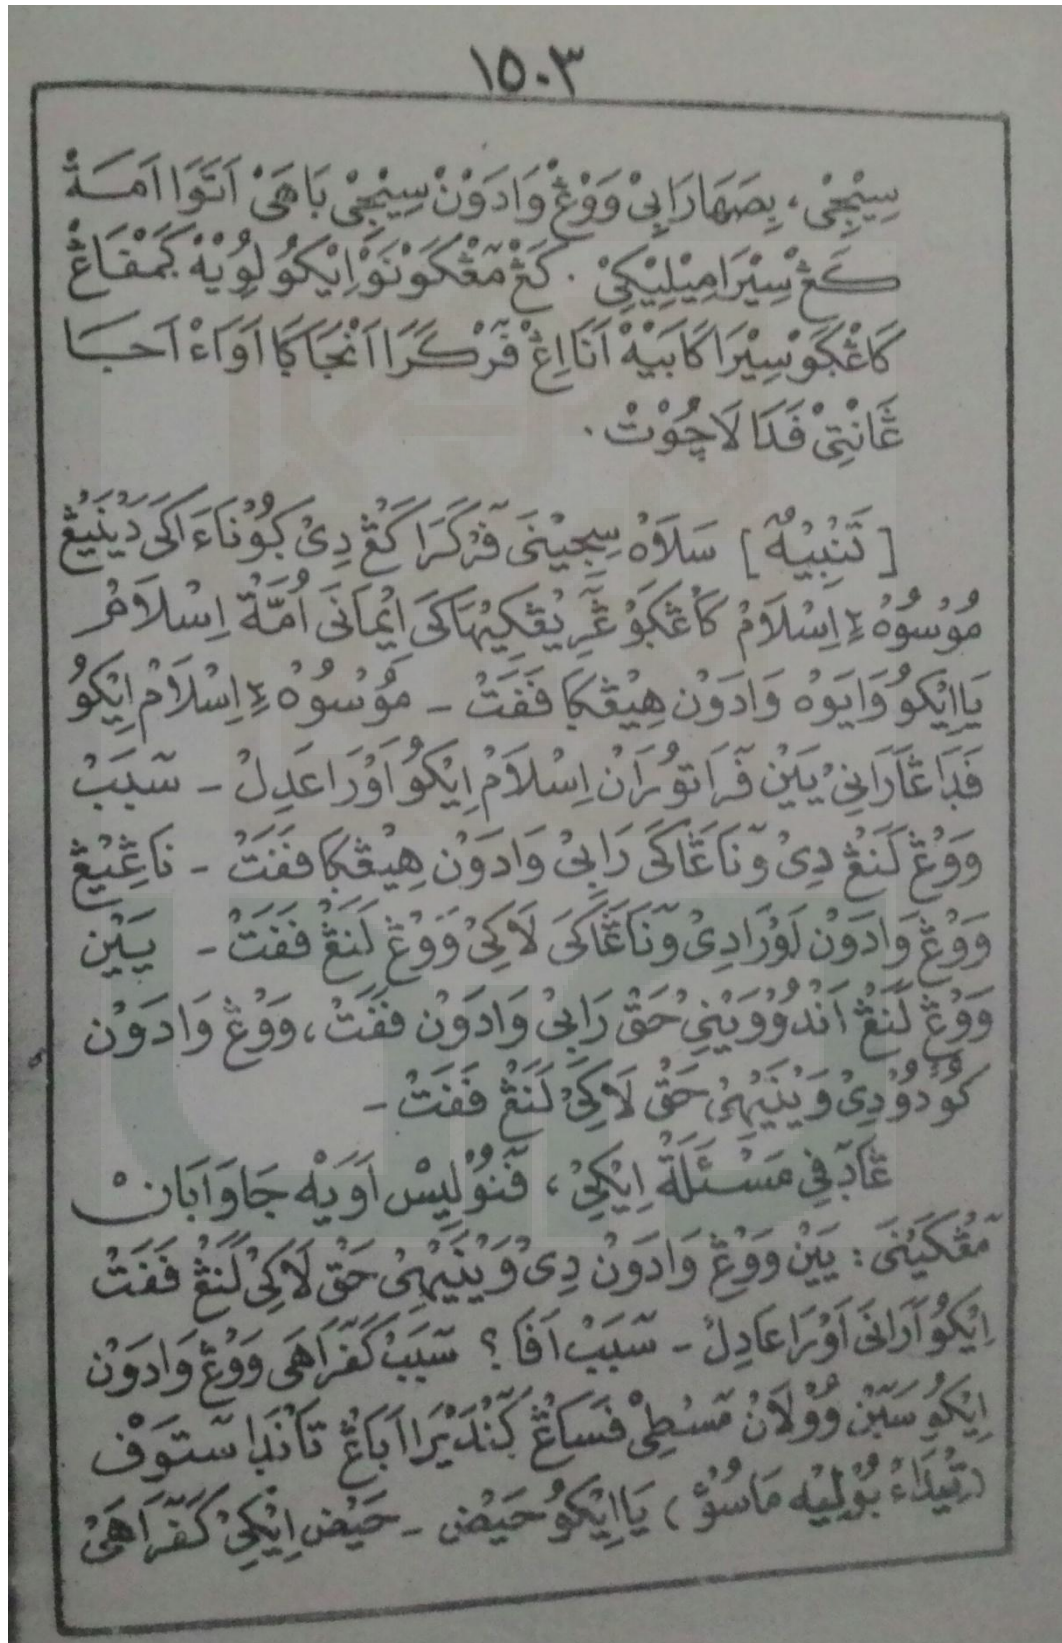 ١٥٠٣
سِيْجِيْ، بِصَهَا رَابِيْ وَوْڠْ وَادَوْنْ سِيْجِيْ بَاهَيْ اَتَوَا اَمَةْ
كَڠْ سِيْرَا مِيْلِيْكِيْ. كَڠْ مَڠْكَوْنَوْ اِيْكُوْ لُوِيْهْ ڮَمْڤَاڠْ
كَاڠْڮَوْ سِيْرَا كَابَيْهْ اَنَا اِڠْ ڤَرْكَرَا اَنْجَاڮَا اَوَاءْ اَجَا
غَانْتِيْ ڤَدَا لَاچُوْتْ.
[تَنْبِيْهٌ] سَلَاهْ سِيْجِيْنَى ڤَرْكَرَا كَڠْ دِيْ ڮُوْنَاءَاكَى دَيْنَيْڠْ
مُوْسُوْهْ٢ اِسْلَامْ كَاڠْڮَوْ غَرِيْڠْكِيْهَاكَى اِيْمَانَى اُمَّةْ اِسْلَامْ
يَا اِيْكُوْ وَايَوْهْ وَادَوْنْ هِيْڠْڮَا ڤَڤَتْ - مُوْسُوْهْ٢ اِسْلَامْ اِيْكُوْ
ڤَدَا غَارَانِيْ يَيْنْ ڤَرَاتُوْرَانْ اِسْلَامْ اِيْكُوْ اَوْرَا عَدِلْ - سَبَبْ
وَوْڠْ لَنَڠْ دِيْ وَنَاڠَاكَى رَابِيْ وَادَوْنْ هِيْڠْڮَا ڤَڤَتْ - نَاڠِيْڠْ
وَوْڠْ وَادَوْنْ اَوْرَا دِيْ وَنَاڠَاكَى لَاكِيْ وَوْڠْ لَنَڠْ ڤَڤَتْ - يَيْنْ
وَوْڠْ لَنَڠْ اَنْدُوْوَيْنِيْ حَقْ رَابِيْ وَادَوْنْ ڤَڤَتْ، وَوْڠْ وَادَوْنْ
كُوْدُوْ دِيْ وَيْنَيْهِيْ حَقْ لَاكِيْ لَنَڠْ ڤَڤَتْ -
غَادَڤِيْ مَسْئَلَةْ اِيْكِيْ، ڤَنُوْلِيْسْ اَوَيْهْ جَاوَابَانْ
مَڠْكَيْنَى: يَيْنْ وَوْڠْ وَادَوْنْ دِيْ وَيْنَيْهِيْ حَقْ لَاكِيْ لَنَڠْ ڤَڤَتْ
اِيْكُوْ اَرَانَى اَوْرَا عَادِلْ - سَبَبْ اَڤَا؟ سَبَبْ كَڤْرَاهَى وَوْڠْ وَادَوْنْ
اِيْكُوْ سَبَنْ وُوْلَانْ مَسْطِيْ ڤَسَاڠْ بَنْدَيْرَا اَبَاڠْ تَانْدَا سَتَوْڤْ
(تِيْدَاءْ بُوْلَيْه مَاسُوْقْ) يَا اِيْكُوْ حَيْضْ - حَيْضْ اِيْكِيْ كَڤْرَاهَى